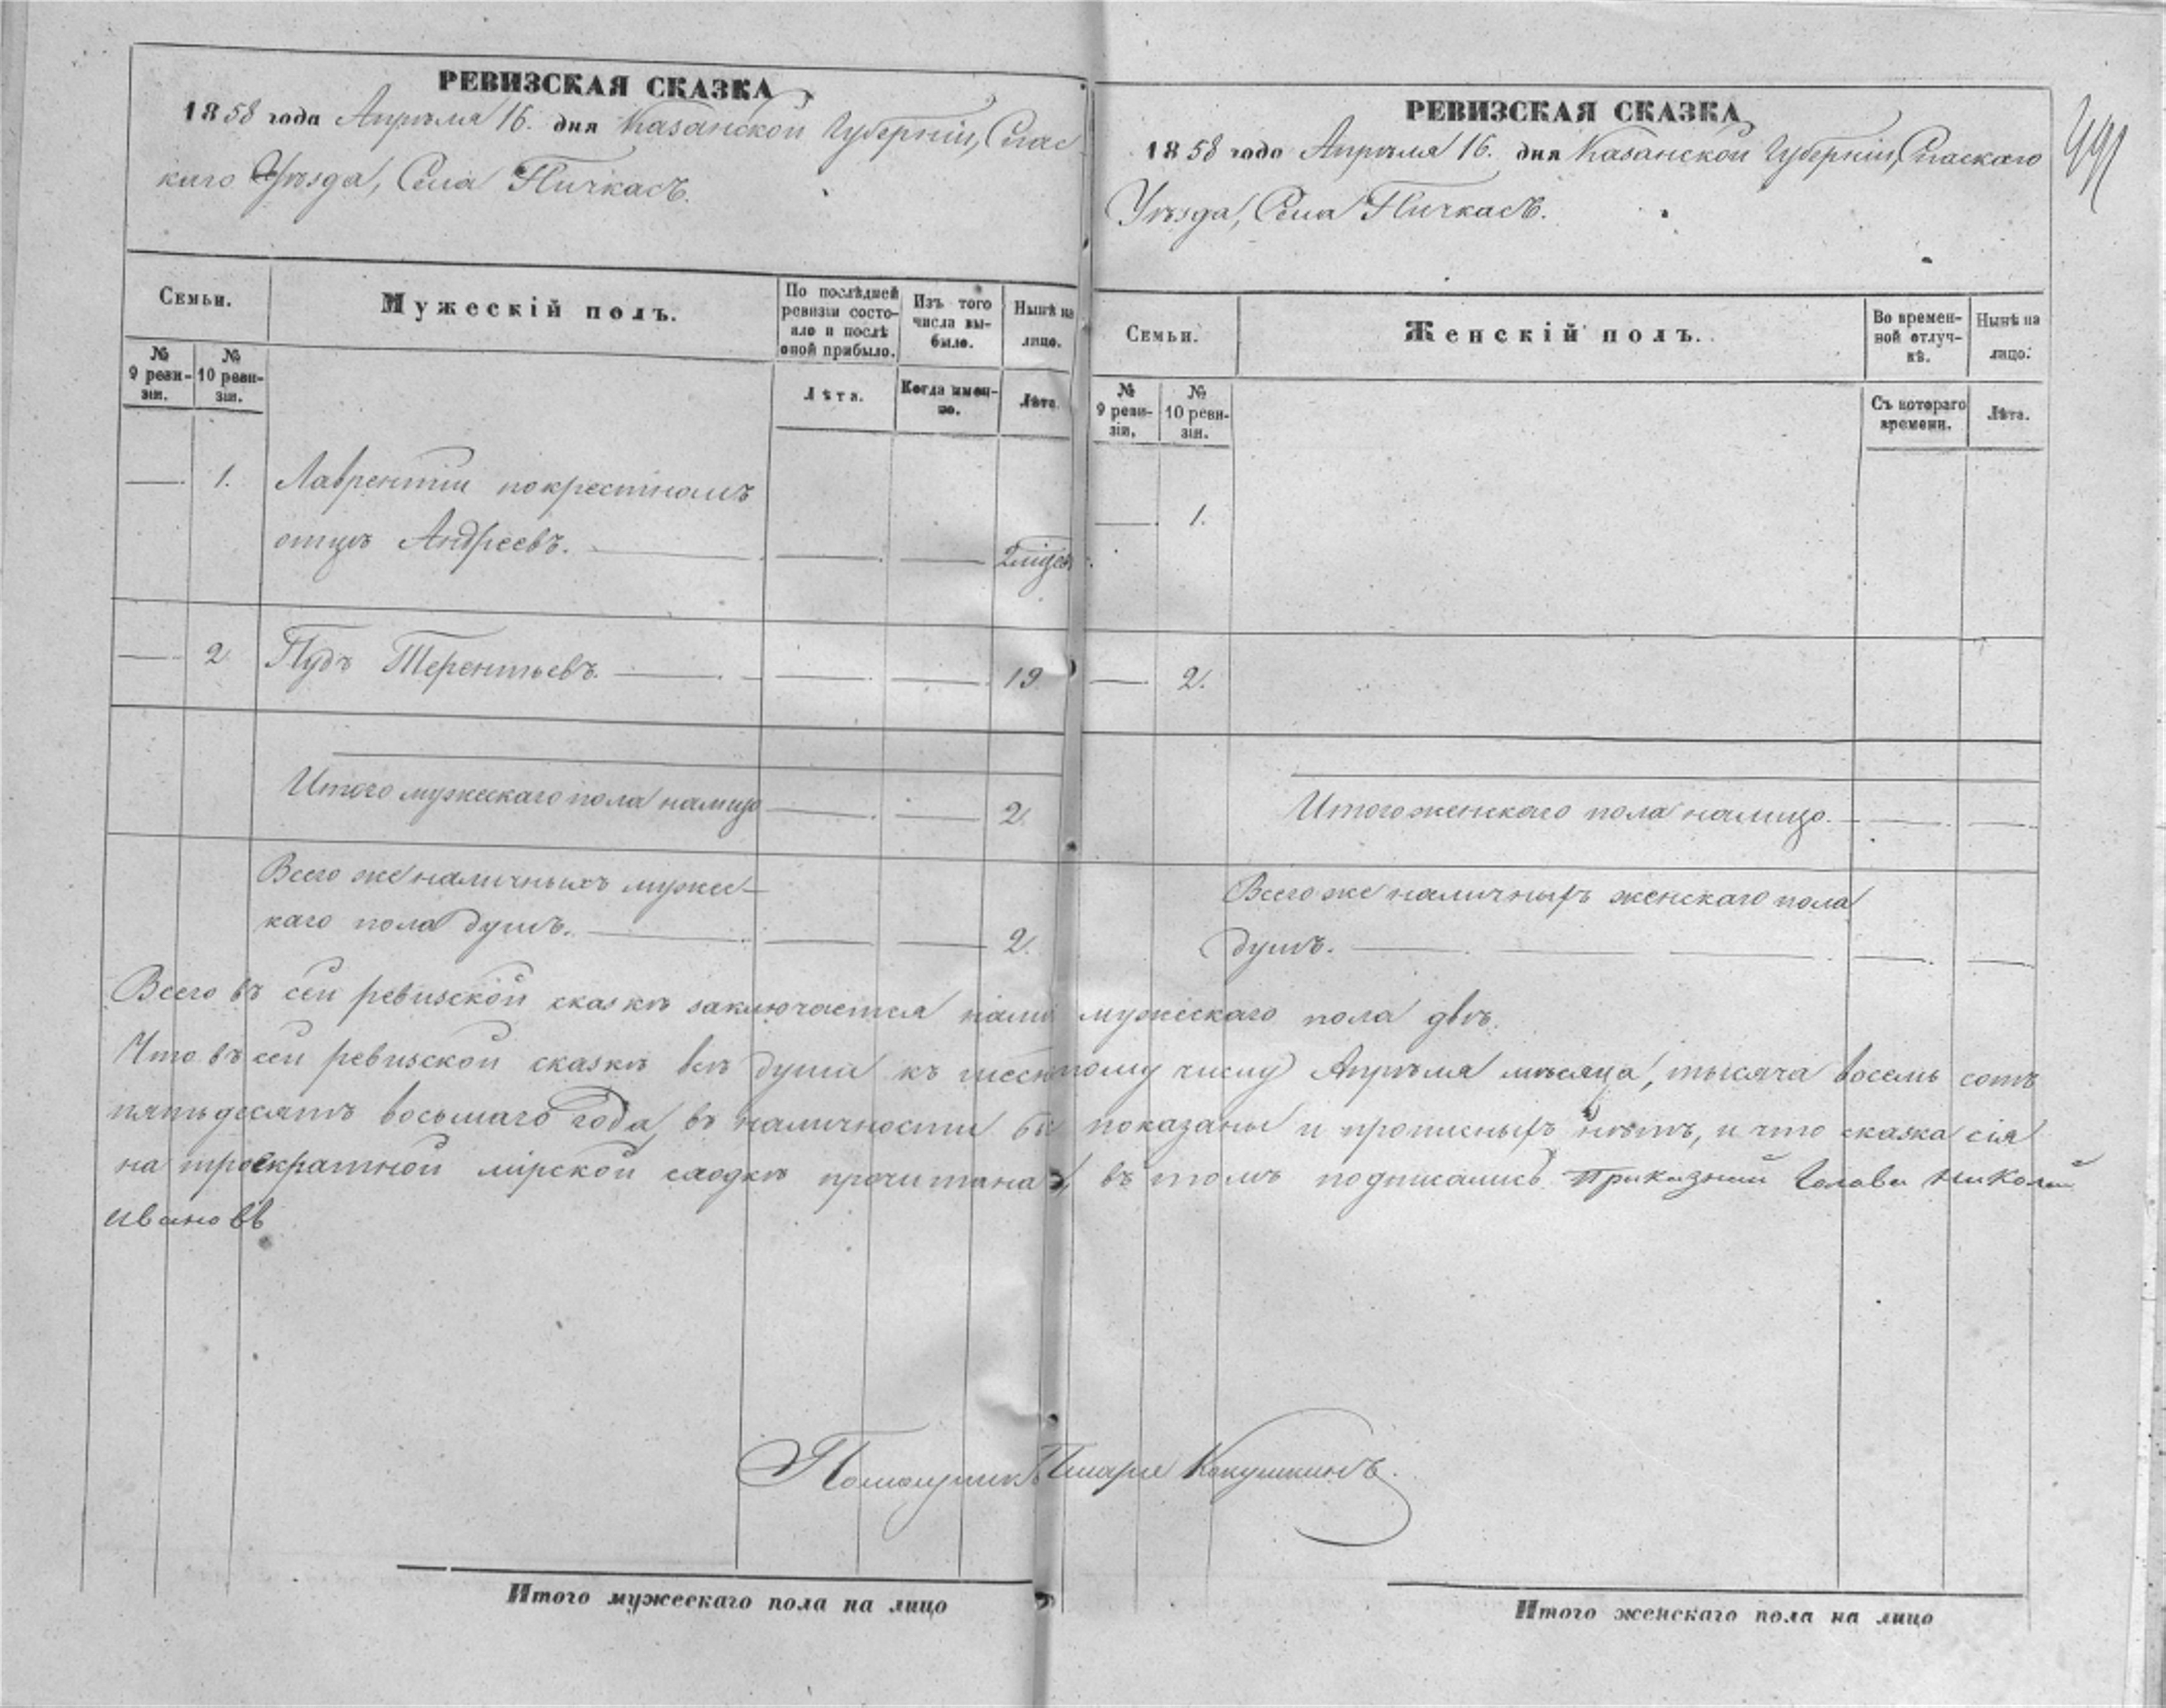 РЕВИЗСКАЯ СКАЗКА
1858 года Апрѣля 16. дня Казанской Губерніи, Спас
каго Уѣзда, Села Пичкасъ.
Семьи.
Мужескій полъ.
По послѣдней ревизіи состояло и послѣ оной прибыло.
Изъ того числа выбыло.
Нынѣ на лицо.
№ 9 ревизіи.
№ 10 ревизіи.
Лѣта.
Когда именно.
Лѣта.
1. Лаврентій покрестномъ
отцѣ Андреевъ.
2 Пудъ Терентьевъ. 19
Итого мужескаго пола налицо 2.
Всего же наличныхъ мужес-
каго пола душъ. 2.
РЕВИЗСКАЯ СКАЗКА
1858 года Апрѣля 16. дня Казанской Губерніи, Спаскаго
Уѣзда, Села Пичкасъ.
491
Семьи.
Женскій полъ.
Во временной отлучкѣ.
Нынѣ на лицо.
№ 9 ревизіи.
№ 10 ревизіи.
Съ котораго времени.
Лѣта.
1.
2.
Итого женскаго пола налицо.
Всего же наличныхъ женскаго пола
душъ.
Всего въ сей ревизской сказкѣ заключается мужескаго пола двѣ.
Что въ сей ревизской сказкѣ всѣ души къ числу Апрѣля мѣсяца, тысяча восемь сотъ
пятьдесятъ восьмаго года, въ наличности показаны и прописныхъ нѣтъ, и что сказка сія
на троекратной мірской сходкѣ прочитана, въ томъ подписались Приказный Голова Николай
Ивановъ
Помощникъ Писаря Кокушкинъ.
Итого мужескаго пола на лицо
Итого женскаго пола на лицо